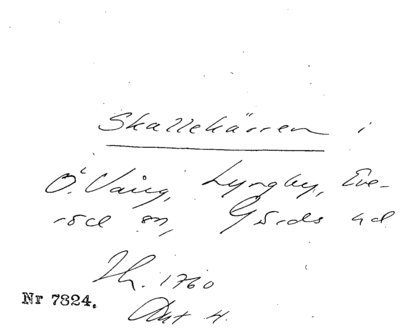 Skallekärren i
Ö. Vång, Lyngby, Eve-
röd sn, Gärds hd
Lh. 1760
Akt 4.
Nr 7824.